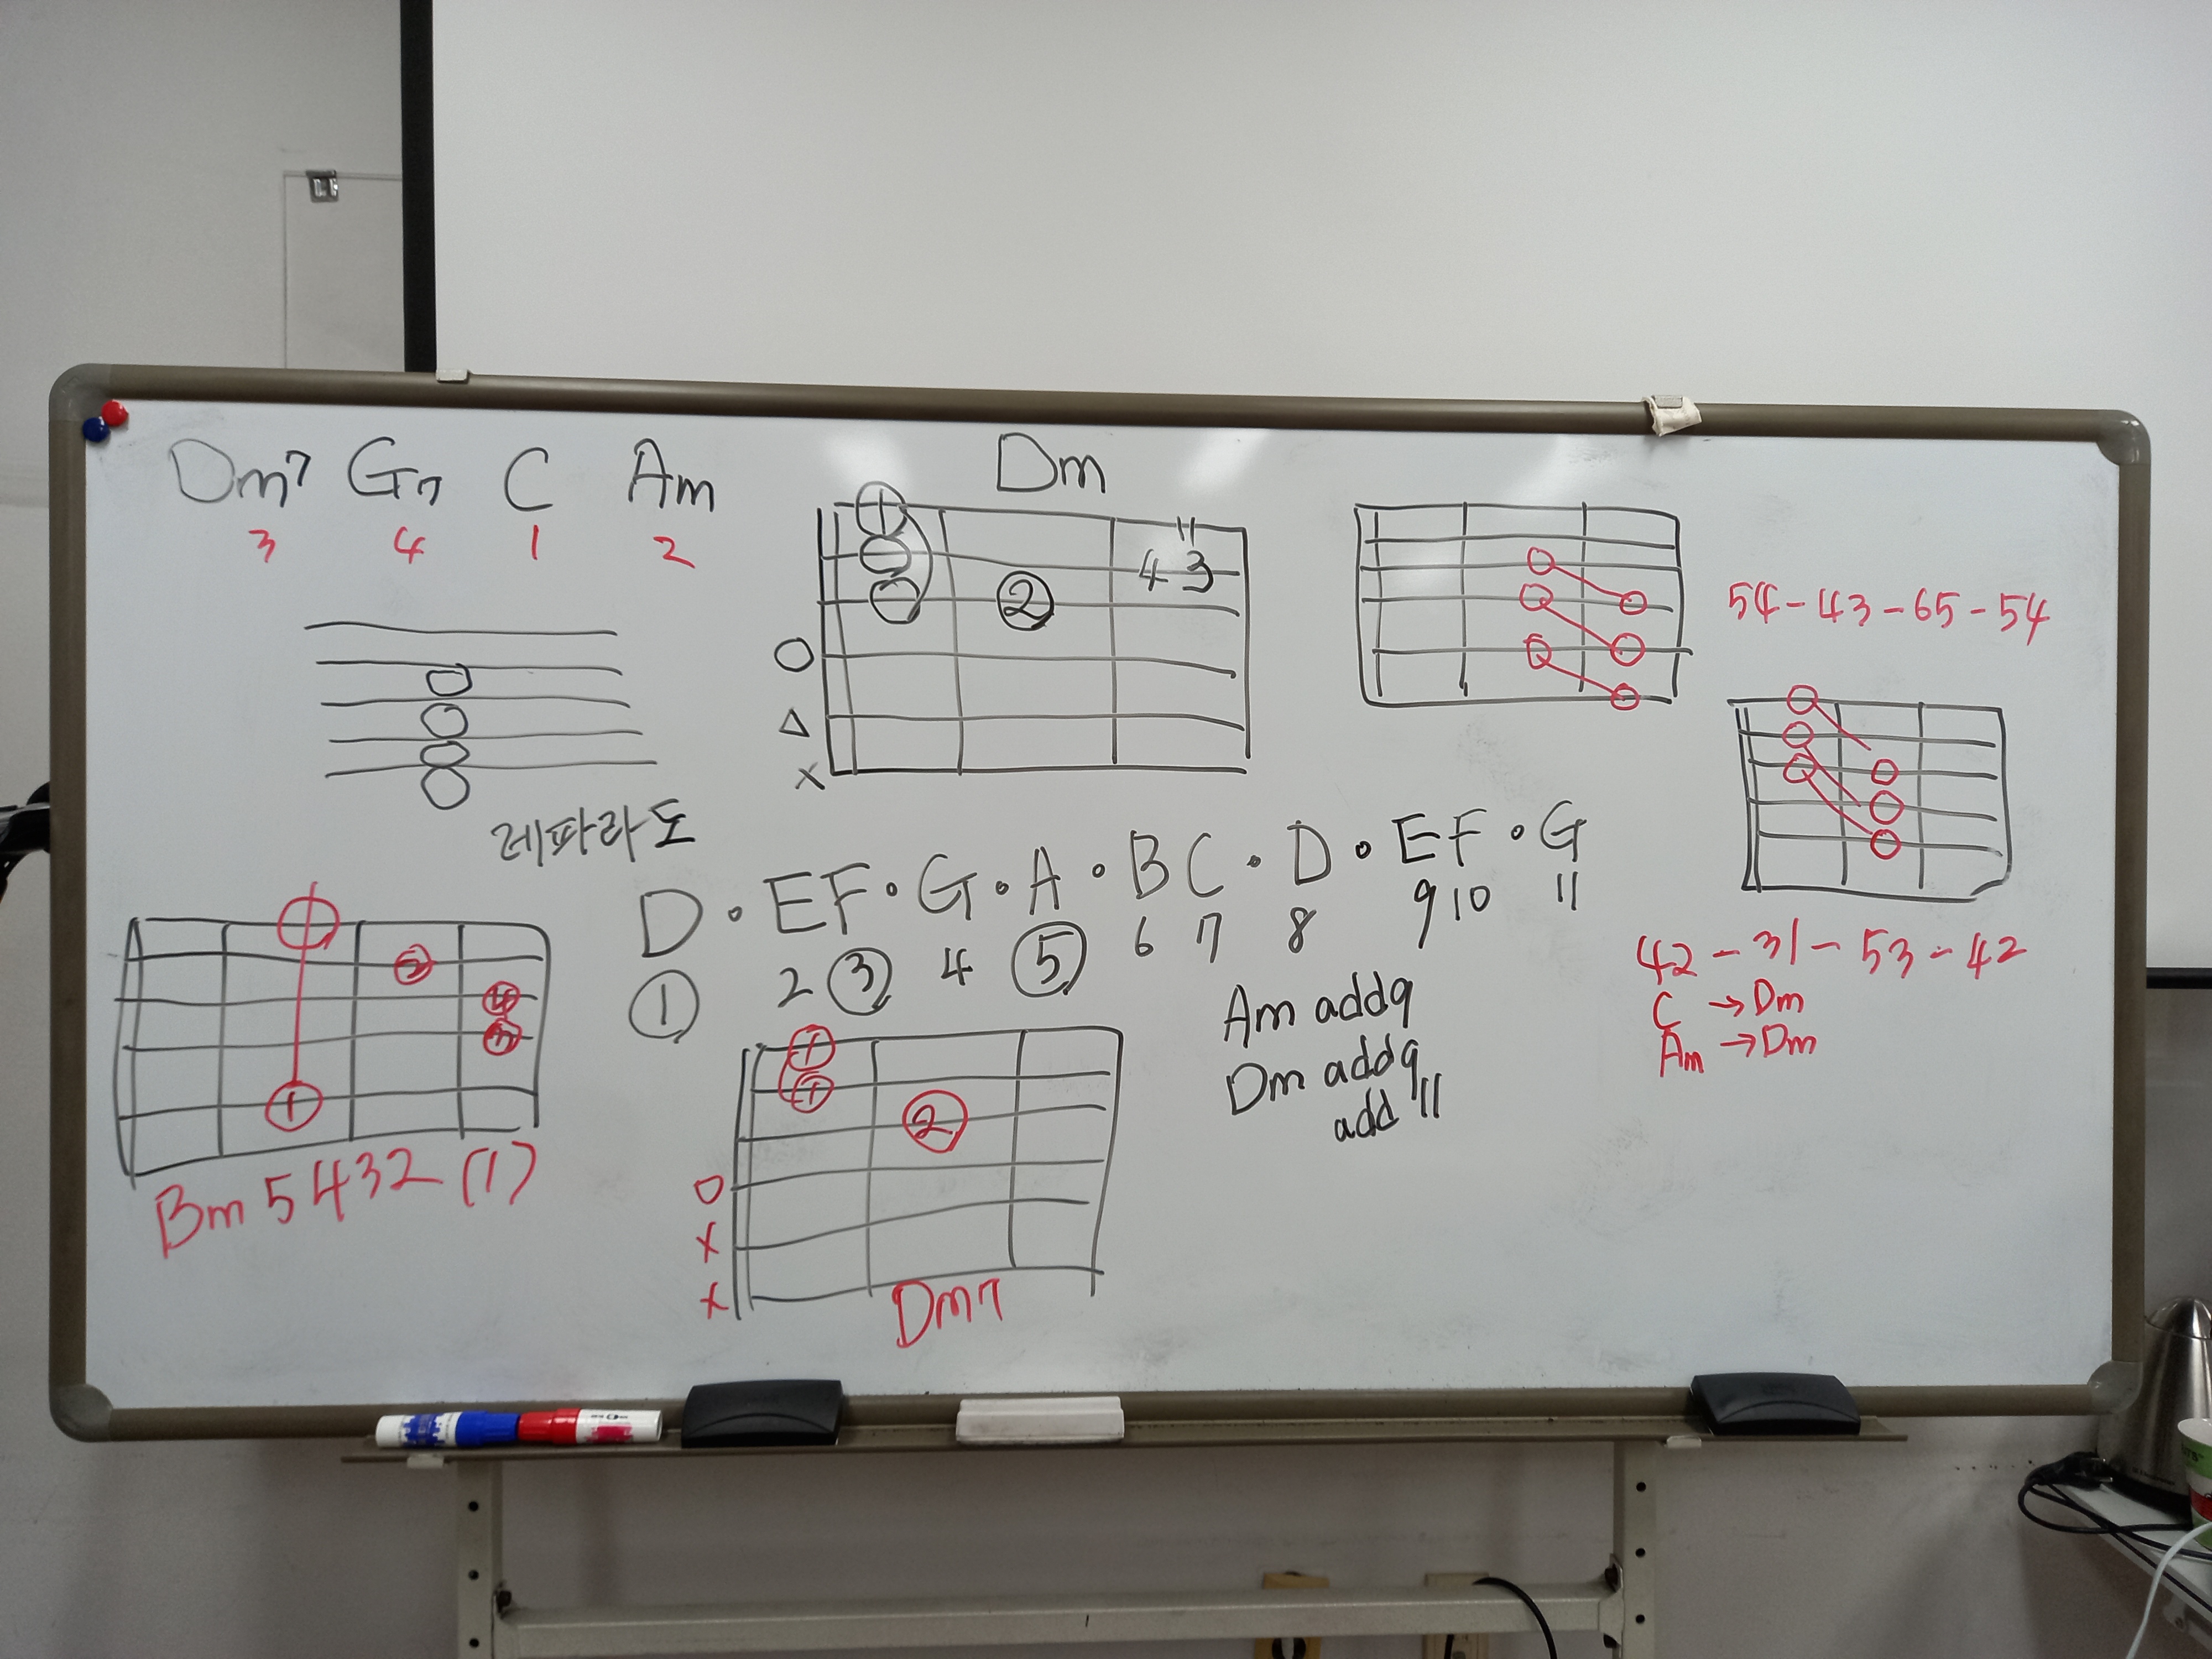 Dm7 G7 C Am
3 4 1 2
레파라도
Dm
1
11
4 3
2
△
X
54-43-65-54
D · E F · G · A · B C · D · E F · G
1 2 3 4 5 6 7 8 9 10 11
1
2
4
3
1
Bm 5432 (1)
1
1
2
X
X
Dm7
Am add9
Dm add9
add 11
42-31-53-42
C → Dm
Am → Dm